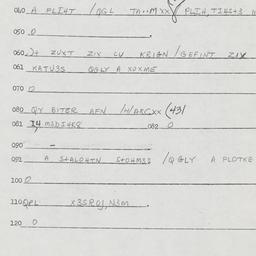 010 A FLIHT /QGL TA··M XX PLIH, TIHS+3
050 0
060 )+ ZUXT ZIX LU KRIGN /GEFINT ZIX
061 KATU3S QGLY A XOXME
070 0
080 QY BITER AFN /H/ARCXX (431
081 I4 M3DIHKS 082 0
090 -
091 A S+ALOHTN S+OHM33 /QGLY A FLOTKE
100 0
110 QPL X3SROJ, N3M
120 0